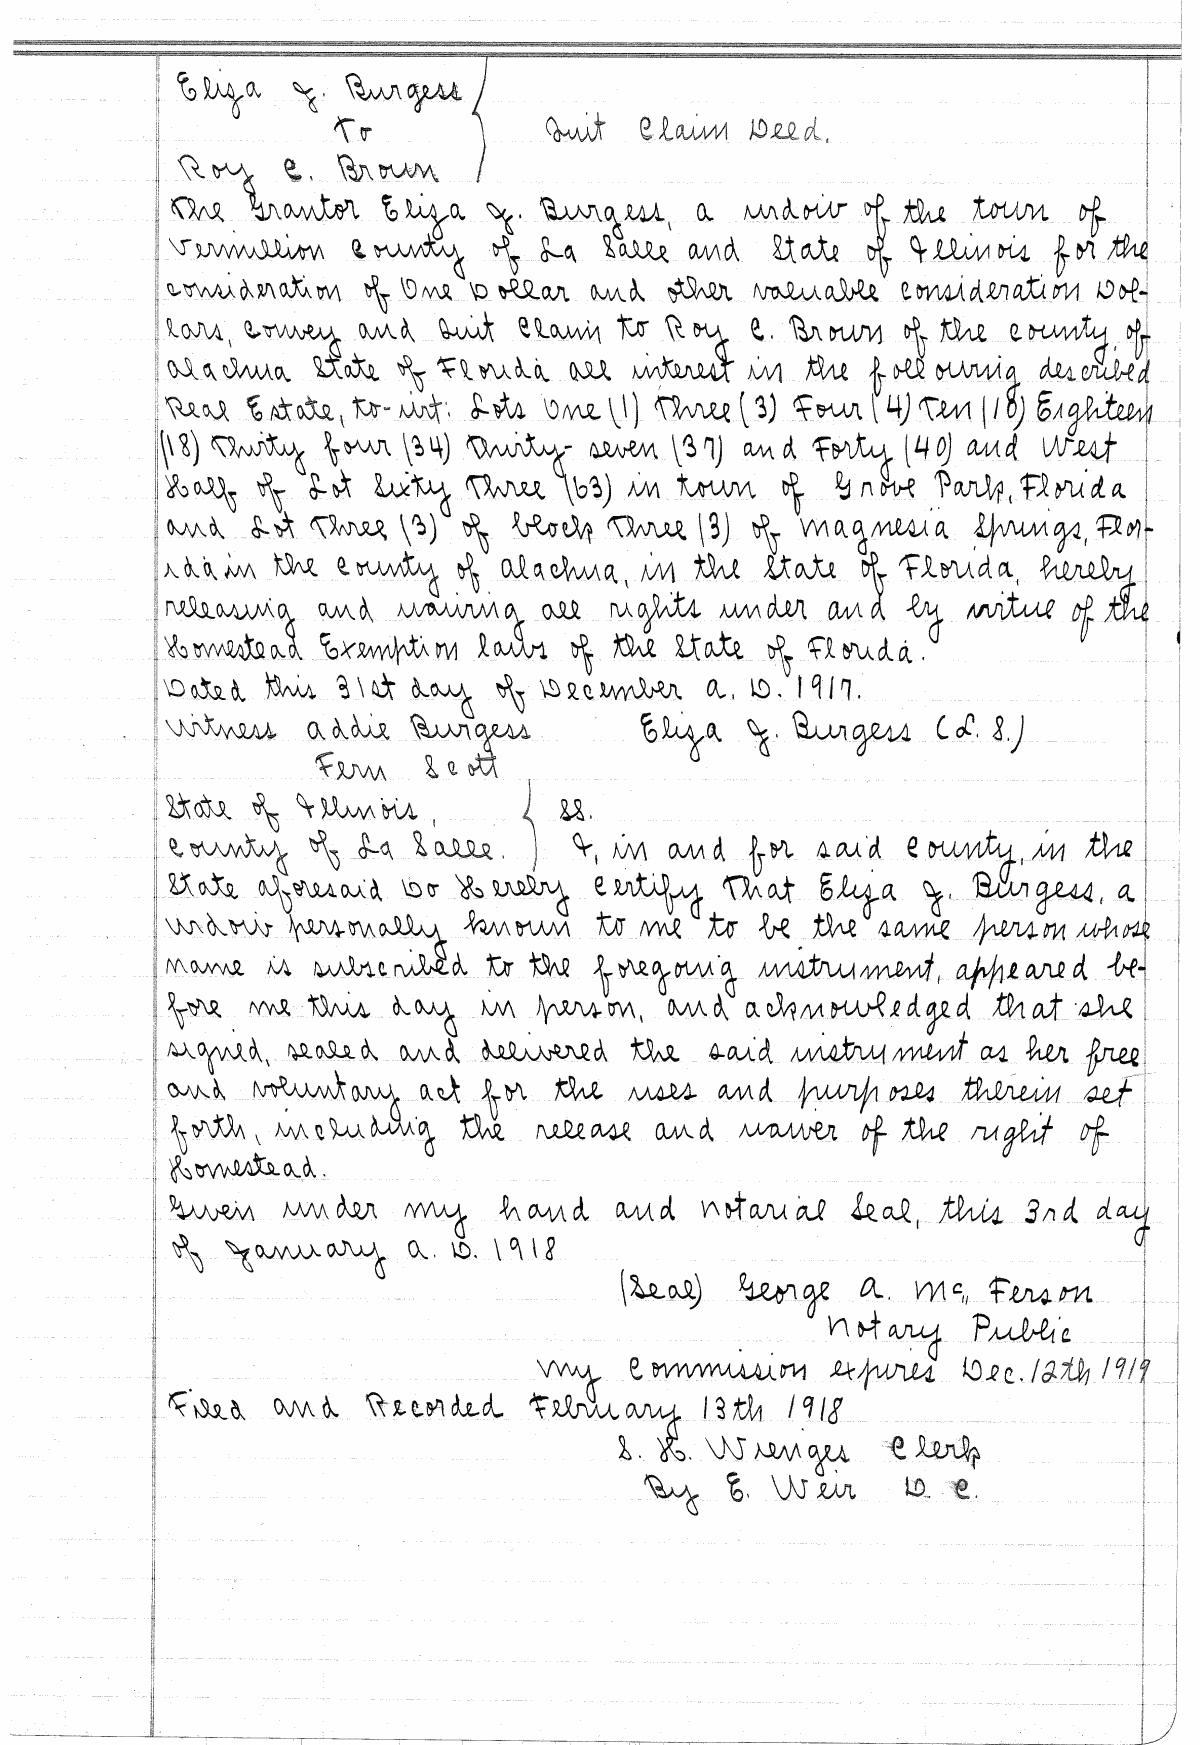 Eliza J. Burgess
To
Quit Claim Deed.
Roy C. Brown
The Grantor Eliza J. Burgess, a widow of the town of
Vermillion County of La Salle and State of Illinois for the
consideration of One Dollar and other valuable consideration Dol-
lars, convey and Quit Claim to Roy C. Brown of the county of
Alachua State of Florida all interest in the following described
Real Estate, to-wit: Lots One (1) Three (3) Four (4) Ten (10) Eighteen
(18) Thirty four (34) Thirty-seven (37) and Forty (40) and West
Half of Lot Sixty Three (63) in town of Grove Park, Florida
and Lot Three (3) of block Three (3) of Magnesia Springs, Flor-
ida in the County of Alachua, in the State of Florida, hereby
releasing and waiving all rights under and by virtue of the
Homestead Exemption laws of the State of Florida.
Dated this 31st day of December A. D. 1917.
Witness Addie Burgess Eliza J. Burgess (L. S.)
Fern Scott
State of Illinois, SS.
County of La Salle. I, in and for said County, in the
State aforesaid Do Hereby Certify That Eliza J. Burgess, a
widow personally known to me to be the same person whose
name is subscribed to the foregoing instrument, appeared be-
fore me this day in person, and acknowledged that she
signed, sealed and delivered the said instrument as her free
and voluntary act for the uses and purposes therein set
forth, including the release and waiver of the right of
Homestead.
Given under my hand and Notarial Seal, this 3rd day
of January A. D. 1918
(Seal) George A. Mc,, Ferson
Notary Public
My Commission expires Dec. 12th 1919
Filed and Recorded February 13th 1918
S. H. Wienges Clerk
By E. Weir D. C.